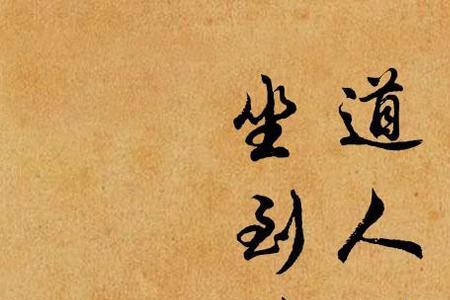 道人
坐到